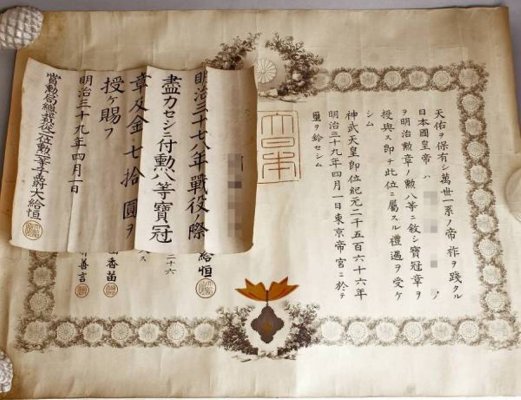 天佑ヲ保有シ萬世一系ノ帝祚ヲ踐タル
日本國皇帝ハ
ヲ明治勲章ノ勲八等ニ敍シ寶冠章ヲ
授與ス即チ此位ニ屬スル禮遇ヲ受ケ
シム
神武天皇即位紀元二千五百六十六年
明治三十九年四月一日東京帝宮ニ於テ
璽ヲ鈐セシム
大日本
給恒
二十六
香苗
善言
明治三十七八年戰役ノ際
盡力セシニ付勲八等寶冠
章及金七拾圓ヲ
授ケ賜フ
明治三十九年四月一日
賞勲局總裁從二位勲一等子爵大給恒